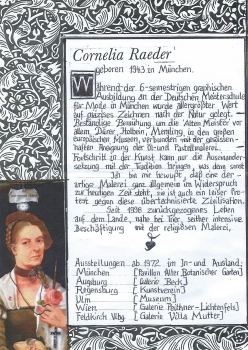 Cornelia Raeder
geboren 1943 in München.
Während der 6-semestrigen graphischen
Ausbildung an der Deutschen Meisterschule
für Mode in München wurde allergrößter Wert
auf präzises Zeichnen nach der Natur gelegt. –
Beständige Bemühung um die 'Alten Meister' vor
allem, Dürer, Holbein, Memling, in den großen
europäischen Museen, verbunden mit der gewissen-
haften Aneignung der Öl- und Pastellmalerei.
Fortschritt in der Kunst kann nur die Auseinander-
setzung mit der Tradition bringen
Ich bin mir bewußt, daß eine der-
artige Malerei ganz allgemein im Widerspruch
zur heutigen Zeit steht, sie ist auch ein leiser Pro-
test gegen diese übertechnisierte Zivilisation.
Seit 1986 zurückgezogenes Leben
auf dem Lande, nahe bei Tier, seither intensive
Beschäftigung mit der religiösen Malerei.
Ausstellungen ab 1972 im In- und Ausland;
München [Pavillon Alter Botanischer Garten]
Augsburg [Galerie Beck]
Regensburg [Kunstverein]
Ulm [Museum]
Wien [Galerie Peithner-Lichtenfels]
Feldkirch Vlbg. [Galerie Villa Mutter]